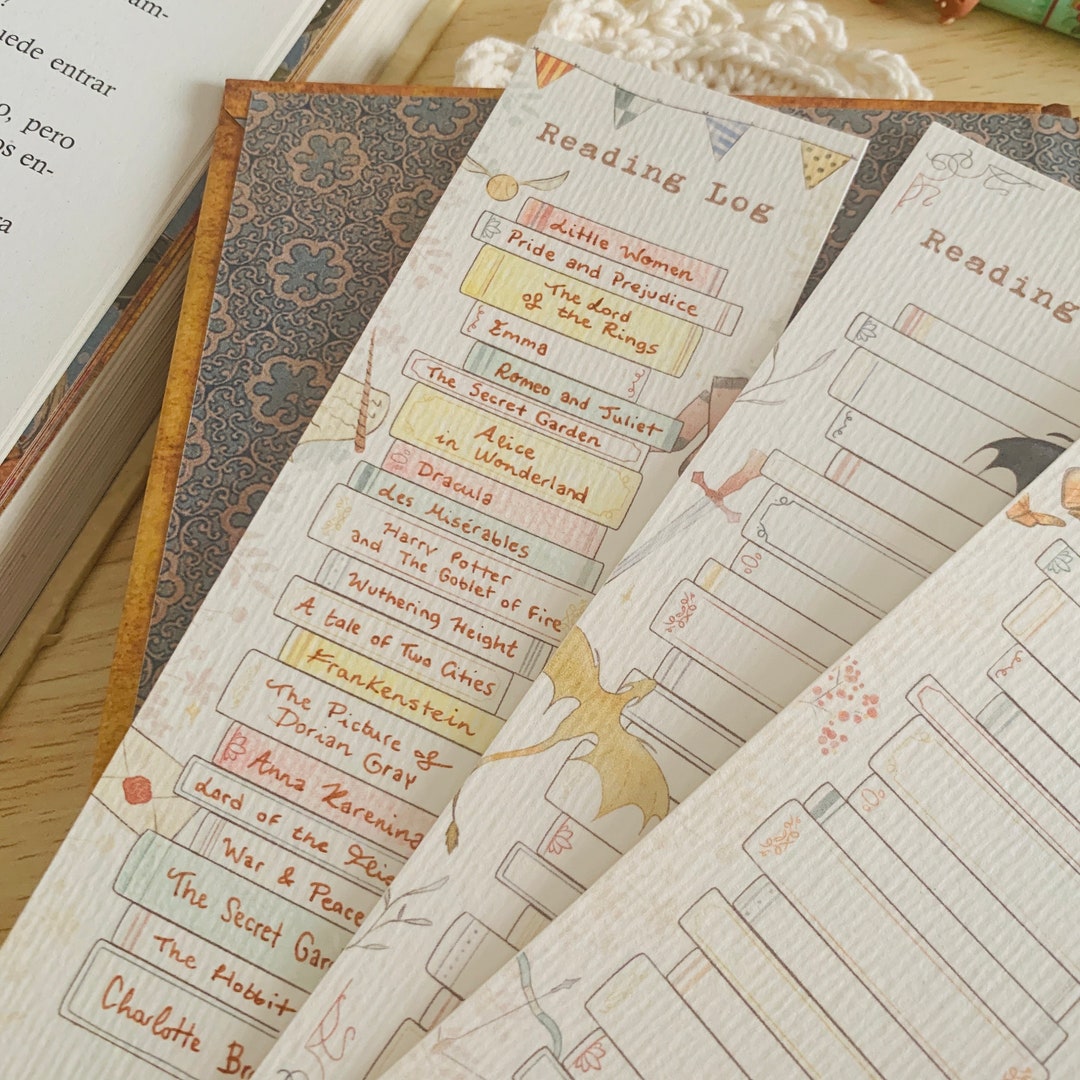 am-
uede entrar
o, pero
os en-
a
Reading Log
Little Women
Pride and Prejudice
The Lord
of the Rings
Emma
Romeo and Juliet
The Secret Garden
Alice
in Wonderland
Dracula
Les Misérables
Harry Potter
and The Goblet of Fire
Wuthering Height
A tale of Two Cities
Frankenstein
The Picture of
Dorian Gray
Anna Karenina
Lord of the Flie
War & Peace
The Secret Gar
The Hobbit
Charlotte Br
Reading